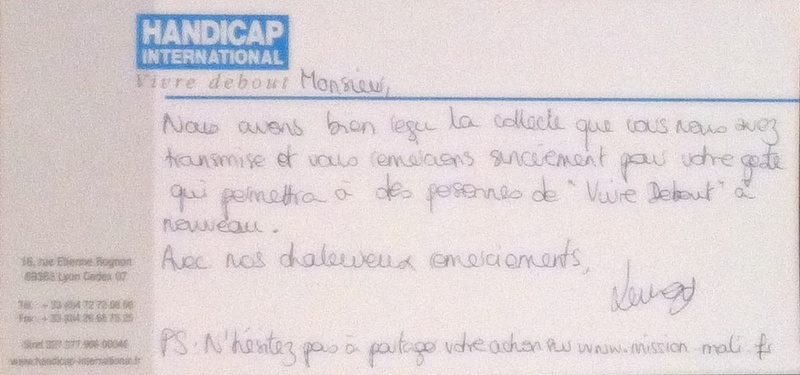 HANDICAP
INTERNATIONAL
Vivre debout
Monsieur,
Nous avons bien reçu la collecte que vous nous avez
transmise et vous remercions sincèrement pour votre geste
qui permettra à des personnes de "Vivre Debout" à
nouveau.
Avec nos chaleureux remerciements,
PS: N'hésitez pas à partager votre action sur www.mission-mali.fr
16, rue Etienne Rognon
69363 Lyon Cedex 07
Tél. + 33 (0)4 72
Fax + 33 (0)4 26 68 75 25
Siret
www.handicap-international.fr